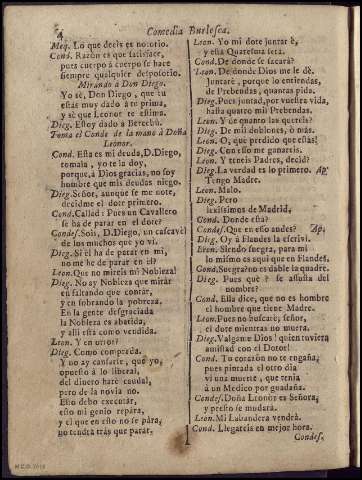 4
Comedia Burlesca.
Meq. Lo que dezis es notorio.
Cond. Razon es que satisface,
pues cuerpo à cuerpo se hace
siempre qualquier desposorio.
Mirando à Don Diego.
Yo sè, Don Diego, que tu
estàs muy dado à te prima,
y sè que Leonor te estima.
Dieg. Estoy dado à Bercebù.
Toma el Conde de la mano à Doña
Leonor.
Cond. Esta es mi deuda, D. Diego,
tomala, yo te la doy,
porque, à Dios gracias, no soy
hombre que mis deudas niego.
Dieg. Señor, aunque se me note,
decidme el dote primero.
Cond. Callad: Pues un Cavallero
se ha de parar en el dote?
Condes. Sois, D. Diego, un cascavèl
de los muchos que yo vì.
Dieg. Si èl ha de parar en mi,
no me he de parar en èl?
Leon. Que no mireis mi Nobleza!
Dieg. No ay Nobleza que mirar
en faltando que contar,
y en sobrando la pobreza.
En la gente desgraciada
la Nobleza es abatida,
y alli està como vendida.
Leon. Y en otro?
Dieg. Como comprada.
Y no ay cansarse, que yo,
opuesto à lo liberal,
del dinero harè caudal,
pero de la novia no.
Esto debo executar,
esto mi genio repara,
y el que en esto no se pàra,
no tendrà tras que parar.
Leon. Yo mi dote juntarè,
y esta Quaresma serà.
Cond. De donde se sacarà?
Leon. De donde Dios me le dè.
Juntarè, porque lo entiendas,
de Prebendas, quantas pida.
Dieg. Pues juntad, por vuestra vida,
hasta quatro mil Prebendas.
Leon. Y de quanto las quereis?
Dieg. De mil doblones, ò màs.
Leon. O, què perdido que estàs!
Dieg. Con esso me ganareis.
Leon. Y teneis Padres, decid?
Dieg. La verdad es lo primero. Ap.
Tengo Madre.
Leon. Malo.
Dieg. Pero
lexissimos de Madrid.
Cond. Donde està?
Condes. Que en esso andes? Ap.
Dieg. Oy à Flandes la escrivì.
Leon. Siendo suegra, para mi
lo mismo es aqui que en Flandes.
Cond. Suegra? no es dable la quadre.
Dieg. Pues què? se assusta del
nombre?
Cond. Ella dice, que no es hombre
el hombre que tiene Madre.
Leon. Pues no buscarè, señor,
el dote mientras no muera.
Dieg. Valgame Dios! quien tuviera
amistad con el Dotor!
Cond. Tu corazon no te engaña,
pues pintada el otro dia
vì una muerte, que tenia
à un Medico por guadaña.
Condes. Doña Leonor es Señora,
y presto se mudarà.
Leon. Mi Labandera vendrà.
Cond. Llegareis en mejor hora.
Condes.